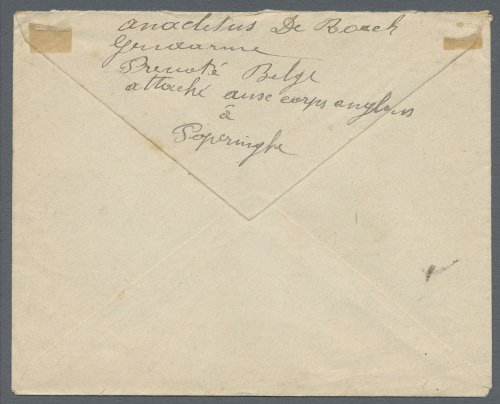 anacletus De Roeck
Gendarme
Prevoté Belge
attaché aux corps anglais
à
Poperinghe